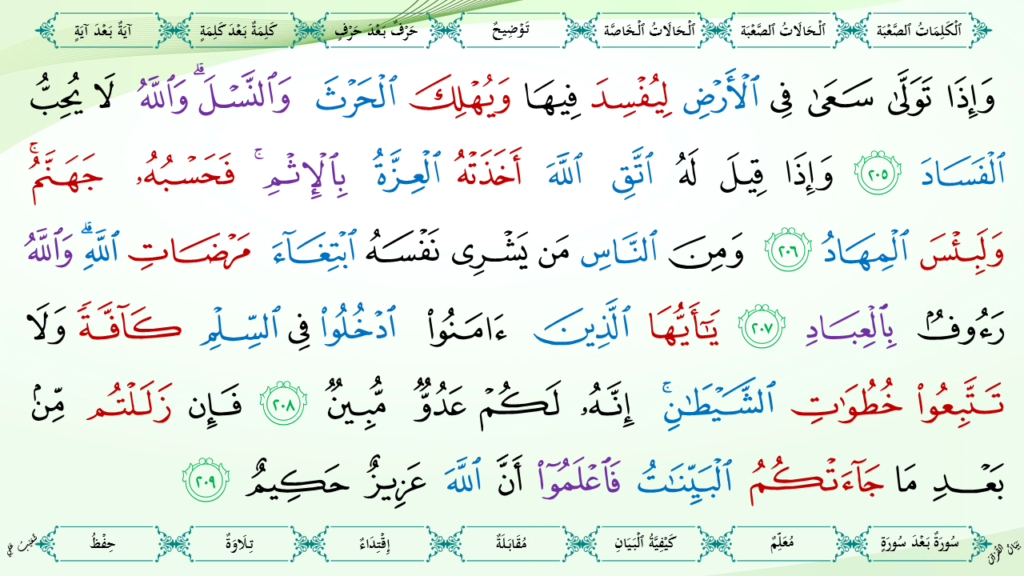 ٱلْكَلِمَاتُ ٱلصَّعْبَة ٱلْحَالَاتُ ٱلصَّعْبَة ٱلْحَالَاتُ ٱلْخَاصَّة تَوْضِيحٌ حَرْفٌ بَعْدَ حَرْفٍ كَلِمَةٌ بَعْدَ كَلِمَةٍ آيَةٌ بَعْدَ آيَةٍ
وَإِذَا تَوَلَّىٰ سَعَىٰ فِى ٱلْأَرْضِ لِيُفْسِدَ فِيهَا وَيُهْلِكَ ٱلْحَرْثَ وَٱلنَّسْلَ ۗ وَٱللَّهُ لَا يُحِبُّ
ٱلْفَسَادَ ٢٠٥ وَإِذَا قِيلَ لَهُ ٱتَّقِ ٱللَّهَ أَخَذَتْهُ ٱلْعِزَّةُ بِٱلْإِثْمِ ۚ فَحَسْبُهُۥ جَهَنَّمُ ۚ
وَلَبِئْسَ ٱلْمِهَادُ ٢٠٦ وَمِنَ ٱلنَّاسِ مَن يَشْرِى نَفْسَهُ ٱبْتِغَآءَ مَرْضَاتِ ٱللَّهِ ۗ وَٱللَّهُ
رَءُوفٌۢ بِٱلْعِبَادِ ٢٠٧ يَـٰٓأَيُّهَا ٱلَّذِينَ ءَامَنُوا۟ ٱدْخُلُوا۟ فِى ٱلسِّلْمِ كَآفَّةً وَلَا
تَتَّبِعُوا۟ خُطُوَٰتِ ٱلشَّيْطَـٰنِ ۚ إِنَّهُۥ لَكُمْ عَدُوٌّ مُّبِينٌ ٢٠٨ فَإِن زَلَلْتُم مِّنۢ
بَعْدِ مَا جَآءَتْكُمُ ٱلْبَيِّنَـٰتُ فَٱعْلَمُوٓا۟ أَنَّ ٱللَّهَ عَزِيزٌ حَكِيمٌ ٢٠٩
سُورَةٌ بَعْدَ سُورَةٍ مُعَلِّمٌ كَيْفِيَّةُ ٱلْبَيَانِ مُقَابَلَةٌ إِقْتِدَاءٌ تِلَاوَةٌ حِفْظٌ